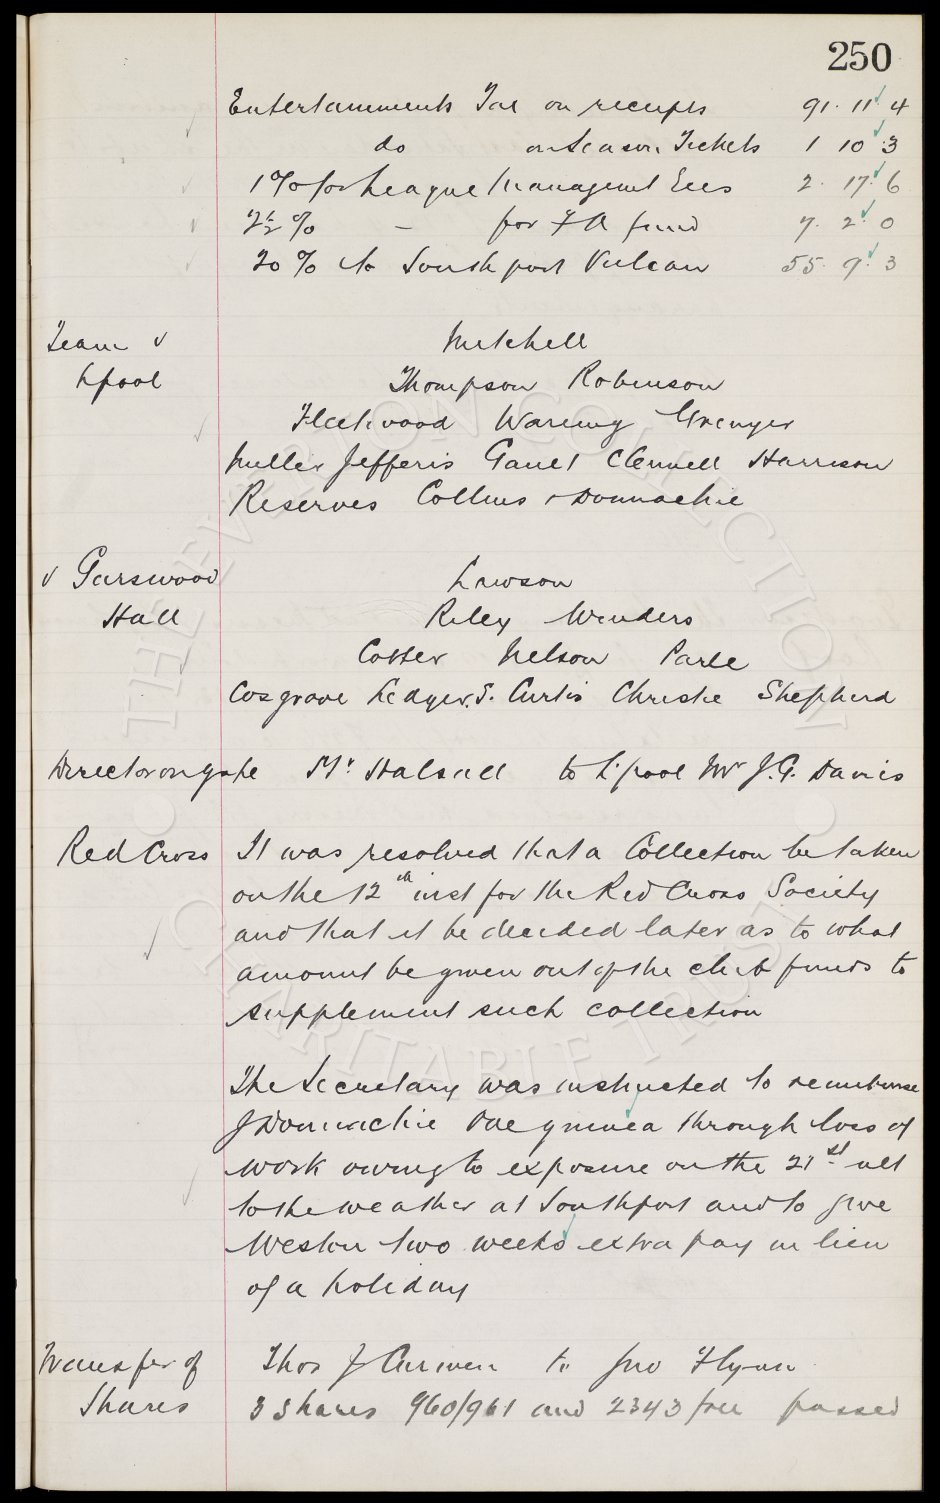 250
Entertainments Tax on receipts 91. 11. 4
do on Season Tickets 1 10 .3
1% for League Management Exes 2. 17. 6
2½% — for F A fund 7. 2. 0
20% to Southport Vulcan 55. 9. 3
Team v Mitchell
Lpool Thompson Robinson
Fleetwood Wareing Grenyer
Miller Jefferis Gault Clennell Harrison
Reserves Collins + Donnachie
v Garswood Lawson
Hall Riley Winders
Cotter Nelson Parle
Cosgrove Ledger. S. Curtis Christie Shepherd
Director on gate Mr. Halsall to L'pool Mr J.G. Davies
Red Cross It was resolved that a Collection be taken
on the 12th inst for the Red Cross Society
and that it be decided later as to what
amount be given out of the club funds to
supplement such collection
The Secretary was instructed to reimburse
J Donnachie One guinea through loss of
work owing to exposure on the 21st. ult
to the weather at Southport and to give
Weston two weeks extra pay in lieu
of a holiday
Transfer of Thos J Curwen to Jno Flynn
Shares 3 Shares 960/961 and 2343 free passed
THE EVERTON COLLECTION
CHARITABLE TRUST